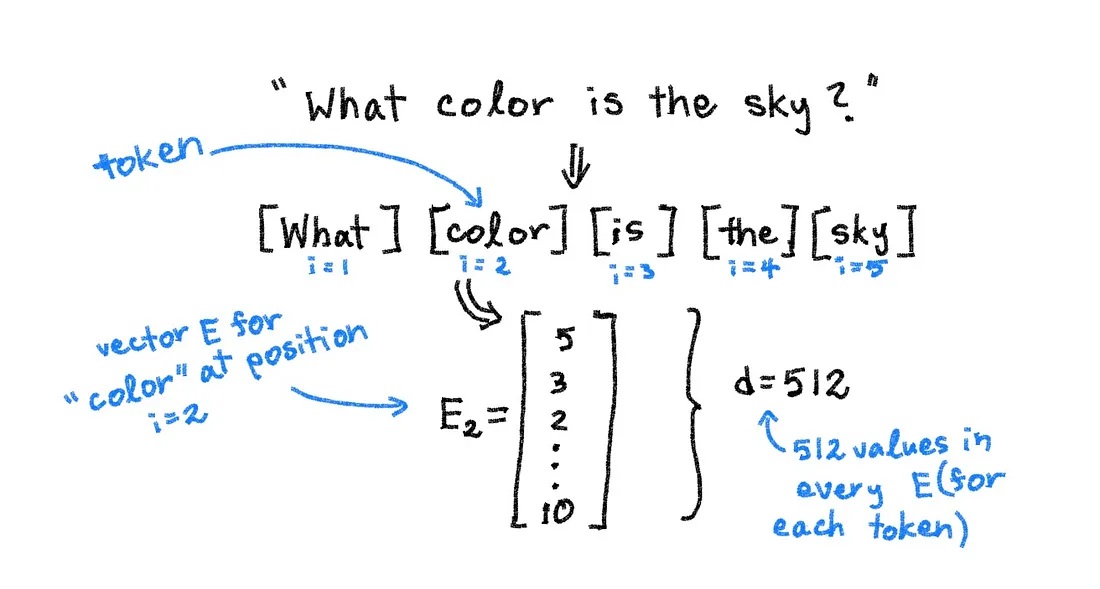 "What color is the sky?"
token
[What] [color] [is] [the] [sky]
i=1 i=2 i=3 i=4 i=5
vector E for
"color" at position
i=2
E₂=
5
3
2
.
.
.
10
d=512
512 values in
every E(for
each token)